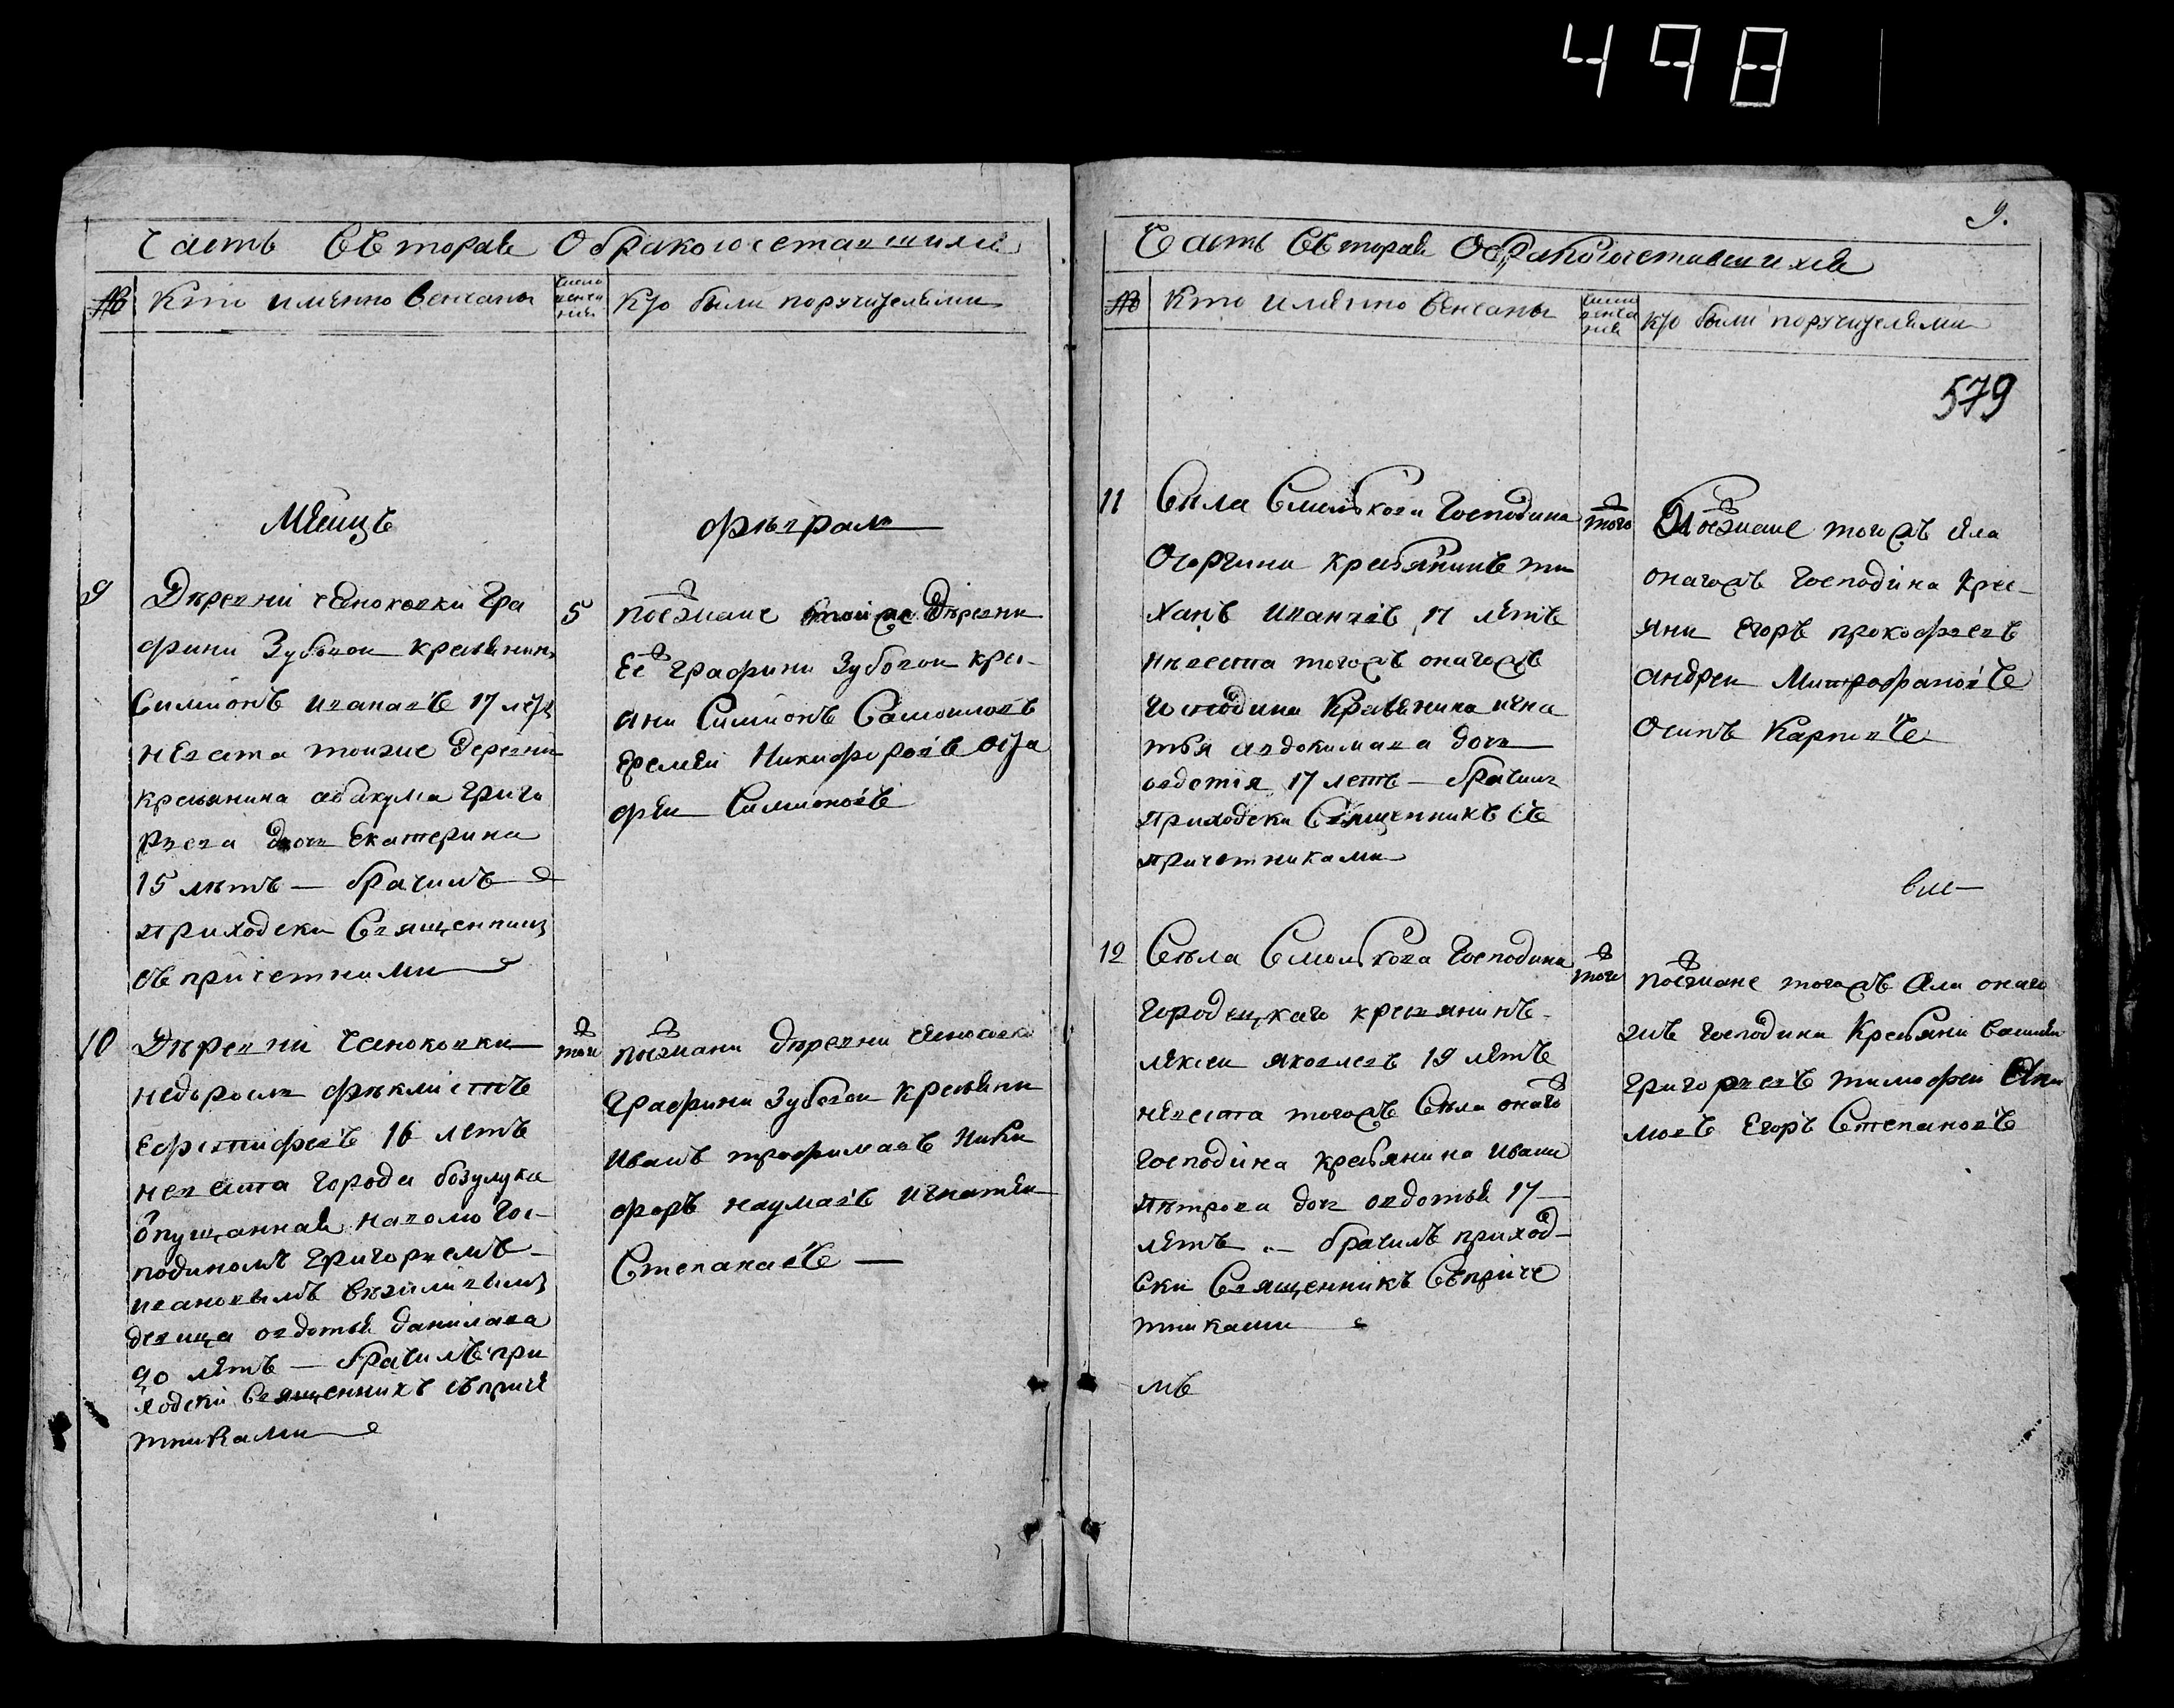 498
Часть Вторая О бракосочетавшихся
№ Кто имянно венчаны
Число
венча
ния
Кто были поручителями
Мѣсяцъ
февраль
9
Деревни
Гра
фини Зубовои крестьянинъ
Симионъ Ивановъ 17 лѣтъ
невеста тоиже деревни
крестьянина абакума григо
рьева дочь Екатерина
15 летъ — брачилъ
приходски Священникъ
съ причетниками
5
поезжане тои же Деревни
Ее графини Зубовои крес-
яни Симионъ Самоиловъ
Еремеи Никифоровъ
феи Симионовъ
10
Деревни
недоросль феклистъ
16 летъ
невеста города бозулука
опущанная на волю гос-
подиномъ григорьемъ
ивановымъ
девица овдотья данилава
20 летъ — брачилъ при
ходски Священникъ съ приче
тниками
того
поезжани деревни
графини Зубовои крестьяни
Иванъ трофимавъ Ники
форъ наумавъ игнатеи
Степанавъ —
9.
Часть Вторая О бракосочетавшихся
№ Кто имянно венчаны
Число
венча
ния
кто были поручителями
579
11
Села Смолькова Господина
крестьянинъ ти
ханъ Иванавъ 17 летъ
невеста тогожъ онагожъ
господина крестьянина игна
тья авдокимава дочь
овдотія 17 летъ — брачилъ
приходски Священникъ съ
причетниками
того
Поезжане тогожъ села
онагожъ господина крес-
яни Егоръ прокофьевъ
андреи Митрофановъ
Осипъ Карповъ
12
Села Смолькова Господина
городецкаго крестьянинъ
алексеи яковлевъ 19 летъ
невеста тогожъ Села онаго
Господина крестьянина Ивана
петрова дочь овдотья 17
летъ — брачилъ приход-
ски Священникъ съ приче
тниками
мъ
того
поезжане тогожъ Села онаго
жъ господина Крестьяни василеи
григорьевъ тимофеи Аки
мовъ Егоръ Степановъ